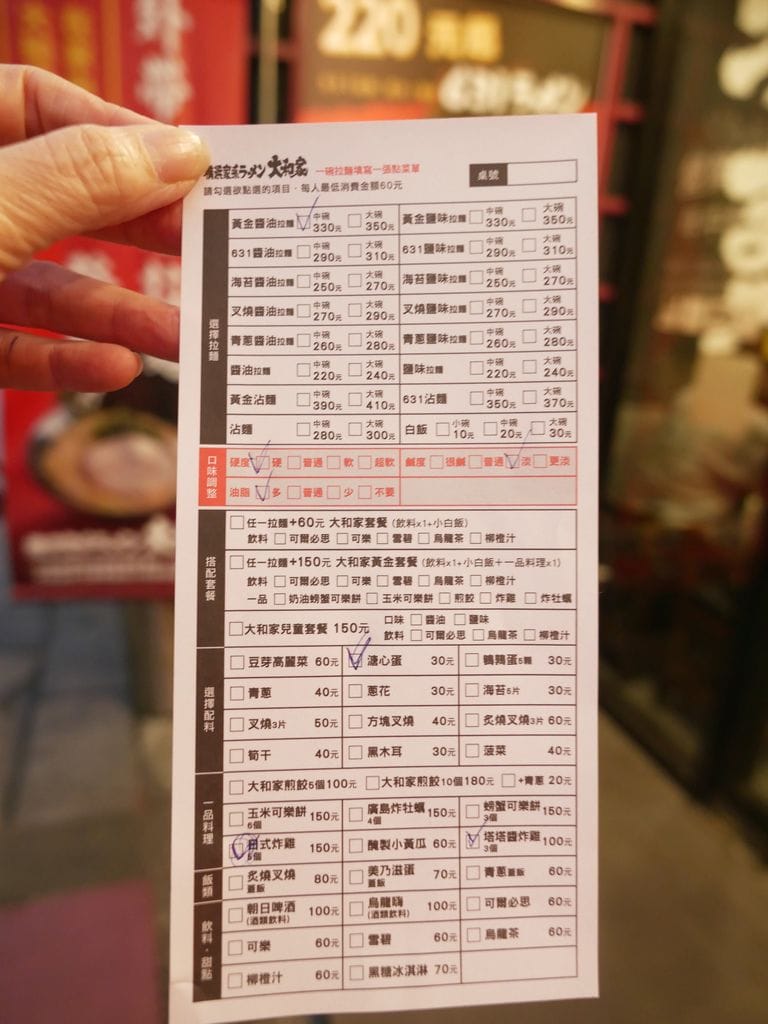 220
横濱家系ラーメン 大和家 一碗拉麵填寫一張點菜單
請勾選欲點選的項目,每人最低消費金額60元
桌號
選擇拉麵
黃金醬油拉麵 中碗 330元 大碗 350元 黃金鹽味拉麵 中碗 330元 大碗 350元
631醬油拉麵 中碗 290元 大碗 310元 631鹽味拉麵 中碗 290元 大碗 310元
海苔醬油拉麵 中碗 250元 大碗 270元 海苔鹽味拉麵 中碗 250元 大碗 270元
叉燒醬油拉麵 中碗 270元 大碗 290元 叉燒鹽味拉麵 中碗 270元 大碗 290元
青蔥醬油拉麵 中碗 260元 大碗 280元 青蔥鹽味拉麵 中碗 260元 大碗 280元
醬油拉麵 中碗 220元 大碗 240元 鹽味拉麵 中碗 220元 大碗 240元
黃金沾麵 中碗 390元 大碗 410元 631沾麵 中碗 350元 大碗 370元
沾麵 中碗 280元 大碗 300元 白飯 小碗 10元 中碗 20元 大碗 30元
口味調整
硬度 硬 普通 軟 超軟 鹹度 很鹹 普通 淡 更淡
油脂 多 普通 少 不要
搭配套餐
任一拉麵+60元 大和家套餐 (飲料x1+小白飯)
飲料 可爾必思 可樂 雪碧 烏龍茶 柳橙汁
任一拉麵+150元 大和家黃金套餐 (飲料x1+小白飯+一品料理x1)
飲料 可爾必思 可樂 雪碧 烏龍茶 柳橙汁
一品 奶油螃蟹可樂餅 玉米可樂餅 煎餃 炸雞 炸牡蠣
大和家兒童套餐 150元 口味 醬油 鹽味
飲料 可爾必思 烏龍茶 柳橙汁
選擇配料
豆芽高麗菜 60元 溏心蛋 30元 鵪鶉蛋5顆 30元
青蔥 40元 蔥花 30元 海苔5片 30元
叉燒3片 50元 方塊叉燒 40元 炙燒叉燒3片 60元
筍干 40元 黑木耳 30元 菠菜 40元
一品料理
大和家煎餃5個100元 大和家煎餃10個180元 +青蔥 20元
玉米可樂餅 6個 150元 廣島炸牡蠣 4個 150元 螃蟹可樂餅 3個 150元
日式炸雞 5個 150元 醃製小黃瓜 60元 塔塔醬炸雞 3個 100元
飯類
炙燒叉燒蓋飯 80元 美乃滋蛋蓋飯 70元 青蔥蓋飯 60元
飲料・甜點
朝日啤酒 (酒類飲料) 100元 烏龍嗨 (酒類飲料) 100元 可爾必思 60元
可樂 60元 雪碧 60元 烏龍茶 60元
柳橙汁 60元 黑糖冰淇淋 70元